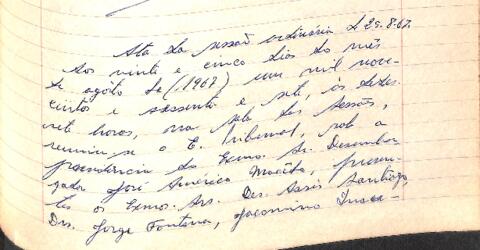 Ata da sessão ordinária d 25.8.67.
Aos vinte e cinco dias do mês
de agôsto de (1967) um mil nove-
centos e sessenta e sete, às dezes-
sete horas, na sala das sessões,
reuniu-se o E. Tribunal, sob a
presidência do Exmo. Sr. Desembar-
gador José Américo Macêdo, presen-
tes os Exmos. Srs. Des. Assis Santiago,
Drs. Jorge Fontana, Jacomino